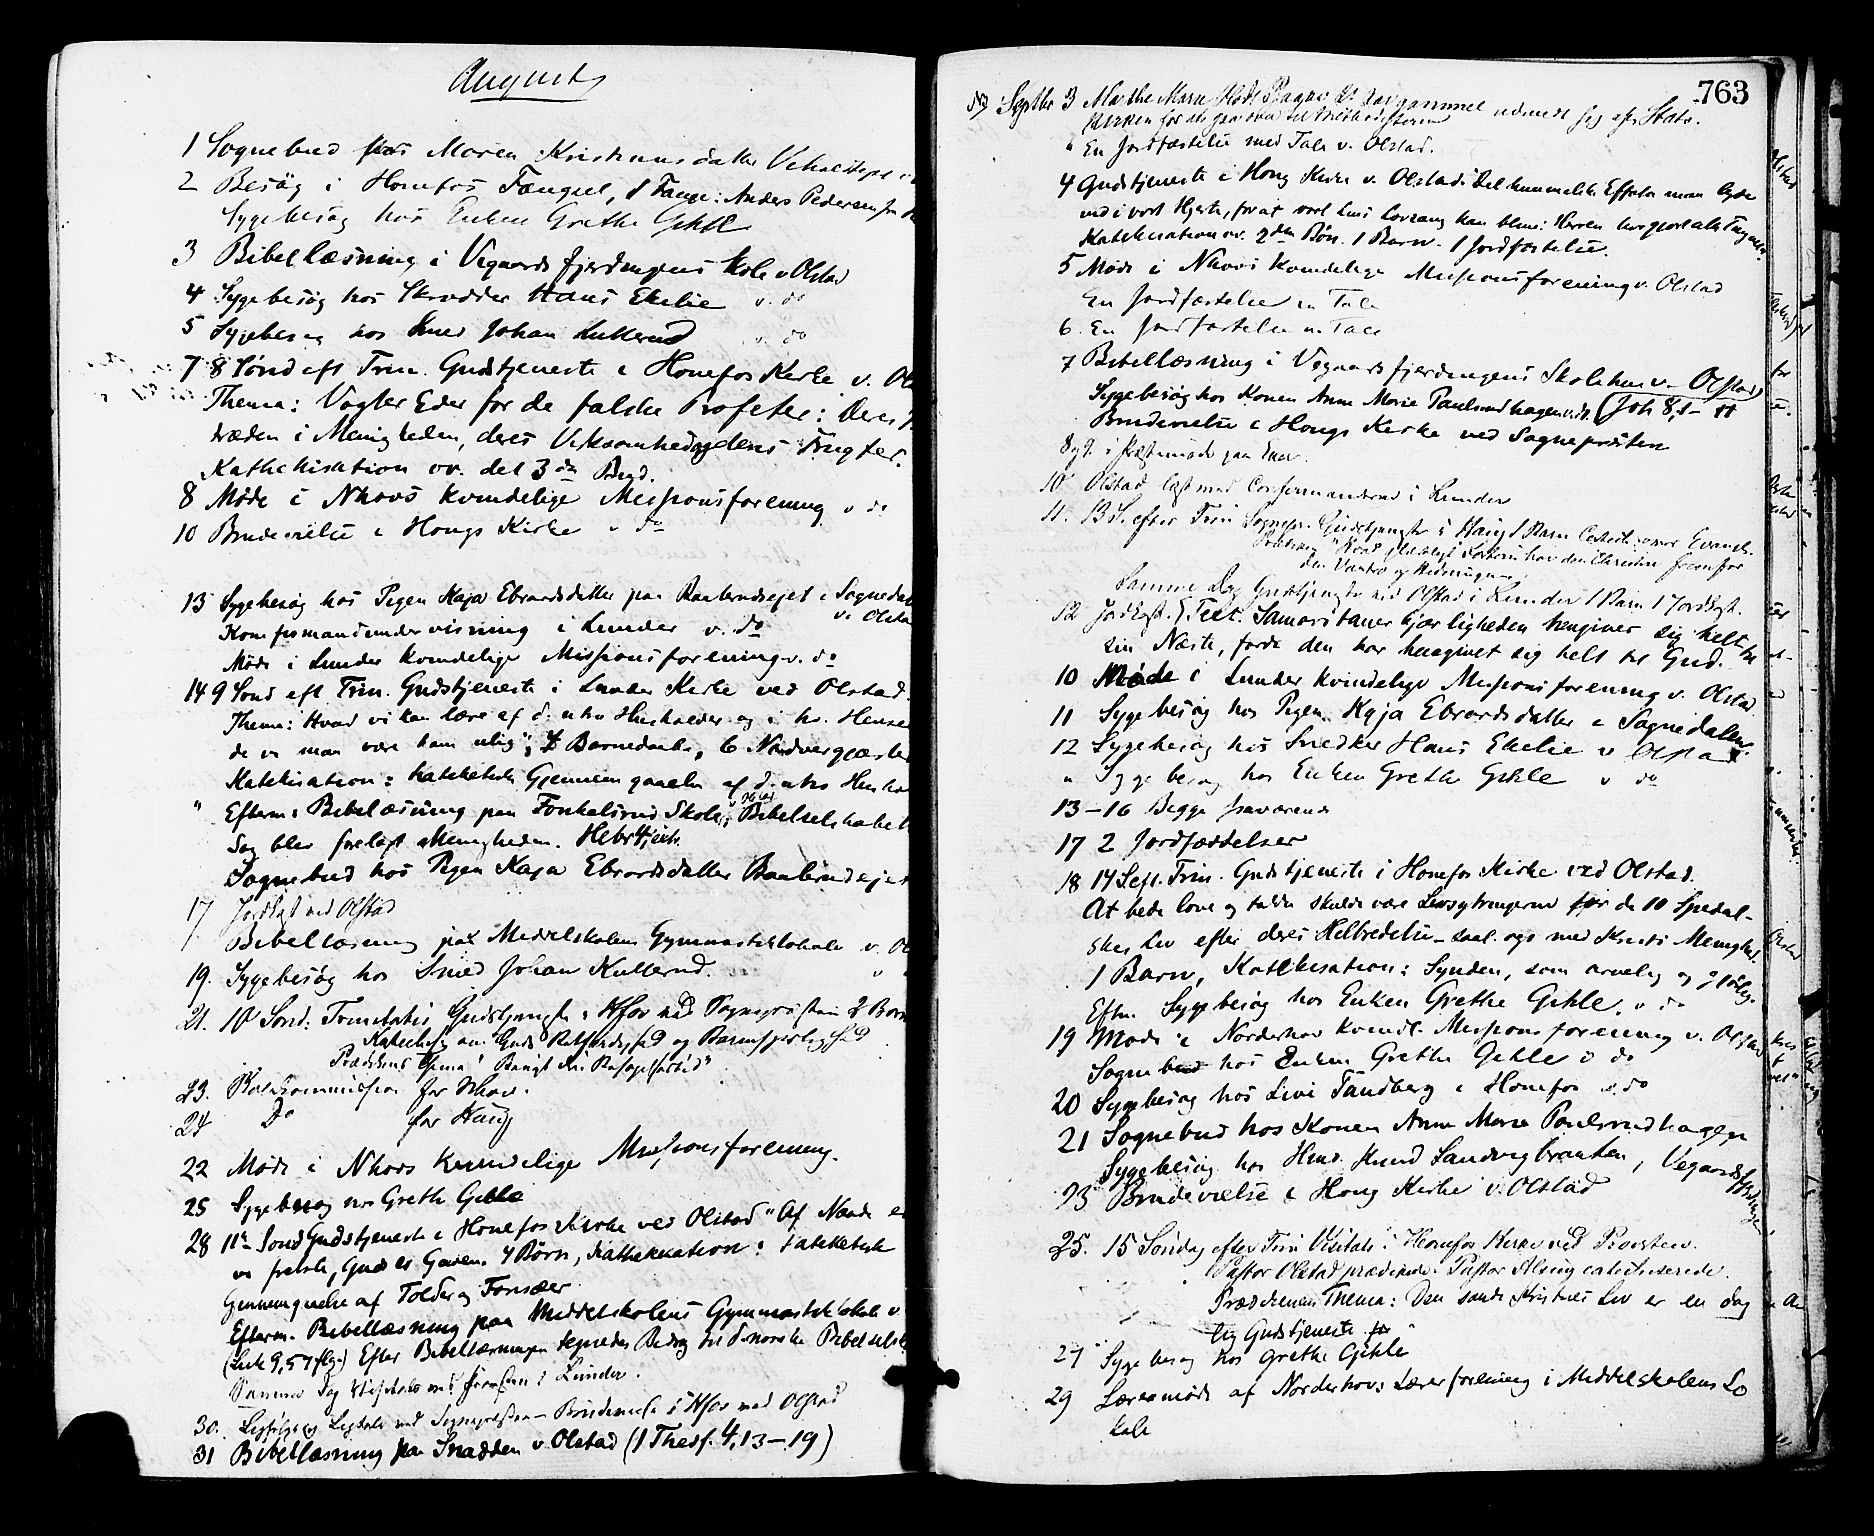 August
1 Sognebud hos Maren Kristiansdatter
2 Besøg i Honefos Fængsel, 1 Fange: Anders Pedersen fra
Sygebesøg hos Enken Grethe Gihle
3 Bibellæsning i Vegaardsfjerdingens Skole v Olstad
4 Sygebesøg hos Skrædder Hans Ekelie v. do
5 Sygebesøg hos Smed Johan Kullerud v. do
7 8 Sønd eft Trin. Gudstjeneste i Honefos Kirke v. Ol
Thema: Vogter Eder for de falske Profeter: Deres
træden i Menigheden, deres Virksomhed og dens Frugter.
Kathekisation ov. det 3die Bud.
8 Møde i Nhovs kvindelige Missionsforening v do
10 Brudevielse i Hougs Kirke v do
13 Sygebesøg hos Pigen Kaja Ebrardsdatter paa i Sognedal
v. Olsta
Konfirmandundervisning i Lunder v. do
Møde i Lunder kvindelige Missionsforening v. do
14 9 Sønd eft Trin. Gudstjeneste i Lunder Kirke ved Olstad.
Thema: Hvad vi kan lære af d. utro Husholder og i hv. Hense
de vi maa være ham ulig", 4 Barnedaabe, 6 Nadvergjæster
Katekisation: kateketisk Gjennemgaaelse af d. utro Hush
" Efterm: Bibellæsning paa Fonkalsrud Skole v Olstad; Bibelselskabets
Sag blev forelagt Menigheden.
Sognebud hos Pigen Kaja Ebrardsdatter
17 Jordfæst ved Olstad
Bibellæsning paa Middelskolens Gymnastiklokale v. Ol
19. Sygebesøg hos Smed Johan Kullerud. "
21. 10 Sønd: Trinitatis Gudstjeneste i Hfos ved Sognepræsten 2 Børn
Katechis om Guds Retfærdighed og Barmhjertighed
Prædikens Thema:
23. for Nhov.
24 Do for Haug
22 Møde i Nhovs kvindelige Missionsforening.
25 Sygebesøg hos Grethe Gihle
28 11te Sønd Gudstjeneste i Honefos Kirke ved Olstad "Af Naade er
vi frelste, Gud er Gaven. 4 Børn, Kathekisation: kateketisk
Gjennemgaaelse af Tolder og Farisæer.
Efterm. Bibellæsning paa Middelskolens Gymnastiklokale v
(Luk 9,57 flg.) Efter Bibellæsningen tegnedes Bidrag til d. norske Bibelselsk
Samme Dag i Lunder.
30. ved Sognepræsten – Brudevielse i Hfos ved Olstad
31 Bibellæsning paa Snadden v. Olstad (1 Thess. 4, 13–19)
763
Septbr 3 Marthe Marie udmeldt sig af Stats-
Kirken for at gaa over til
" En Jordfæstelse med Tale v. Olstad.
4 Gudstjeneste i Houg Kirke v. Olstad: Det himmelske Effata maa lyde
ind i vort Hjerte, for at vort Livs Lovsang kan blive: Herren har gjort alle Ting vel.
Katekisation ov. 2den Bøn. 1 Barn. 1 Jordfæstelse.
5 Møde i Nhovs Kvindelige Missionsforening v. Olstad
En Jordfæstelse m Tale
6. En Jordfæstelse m Tale
7 Bibellæsning i Vegaardsfjerdingens Skolehus v. Olstad
Sygebesøg hos Konen Anne Marie Paulsrudhagen (Joh 8,1–11
Brudevielse i Hougs Kirke ved Sognepræsten
8 og 9. i Præstemøde paa
10 Olstad læst med Confirmanderne i Lunder
11. 13 S. efter Trin Sognepr. Gudstjeneste i Haug 1 Barn Evangel.
den Vantro og Hedningerne
Samme Dag Gudstjeneste ved Olstad i Lunder 1 Barn 1 Jordfæst.
12 Jordfæst. Text. Samaritanerkjærligheden hengiver sig helt til
sin Næste, fordi den har hengivet sig helt til Gud.
10 Møde i Lunder kvindelige Missionsforening v. Olstad.
11 Sygebesøg hos Pigen Kaja Ebrardsdatter i Sognedalen.
12 Sygebesøg hos Snedker Hans Ekelie v Olstad
" Sygebesøg hos Enken Grethe Gihle v do
13–16 Begge fraværende
17 2 Jordfæstelser
18 14 S eft. Trin. Gudstjeneste i Honefos Kirke ved Olstad.
At bede love og takke skulde være Livsytringerne for de 10 Spedal-
skes Liv efter deres Helbredelse – saal. ogs med Kristi Menighed.
1 Barn, Katekisation: Synden, som arvelig og
Efterm. Sygebesøg hos Enken Grethe Gihle. v do
19 Møde i Norderhov kvindl. Missionsforening v. Olstad
Sognebud hos Enken Grethe Gihle v do
20 Sygebesøg hos Livi Tandberg i Honefos v. do
21 Sognebud hos Konen Anne Marie Paulsrudhagen
Sygebesøg hos Knud Sandvigbraaten, Vegaardsfjerdingen
23 Brudevielse i Houg Kirke v. Olstad
25. 15 Søndag efter Trin Visitats i Honefos Kirke ved Provsten.
Pastor Olstad prædikede. Pastor catechiserede.
Prædikenens Thema: Den sande Kristnes Liv er en dag
lig Gudstjeneste
27 Sygebesøg hos Grethe Gihle
29 Læremøde af Norderhovs Lærerforening i Middelskolens Lo
kale